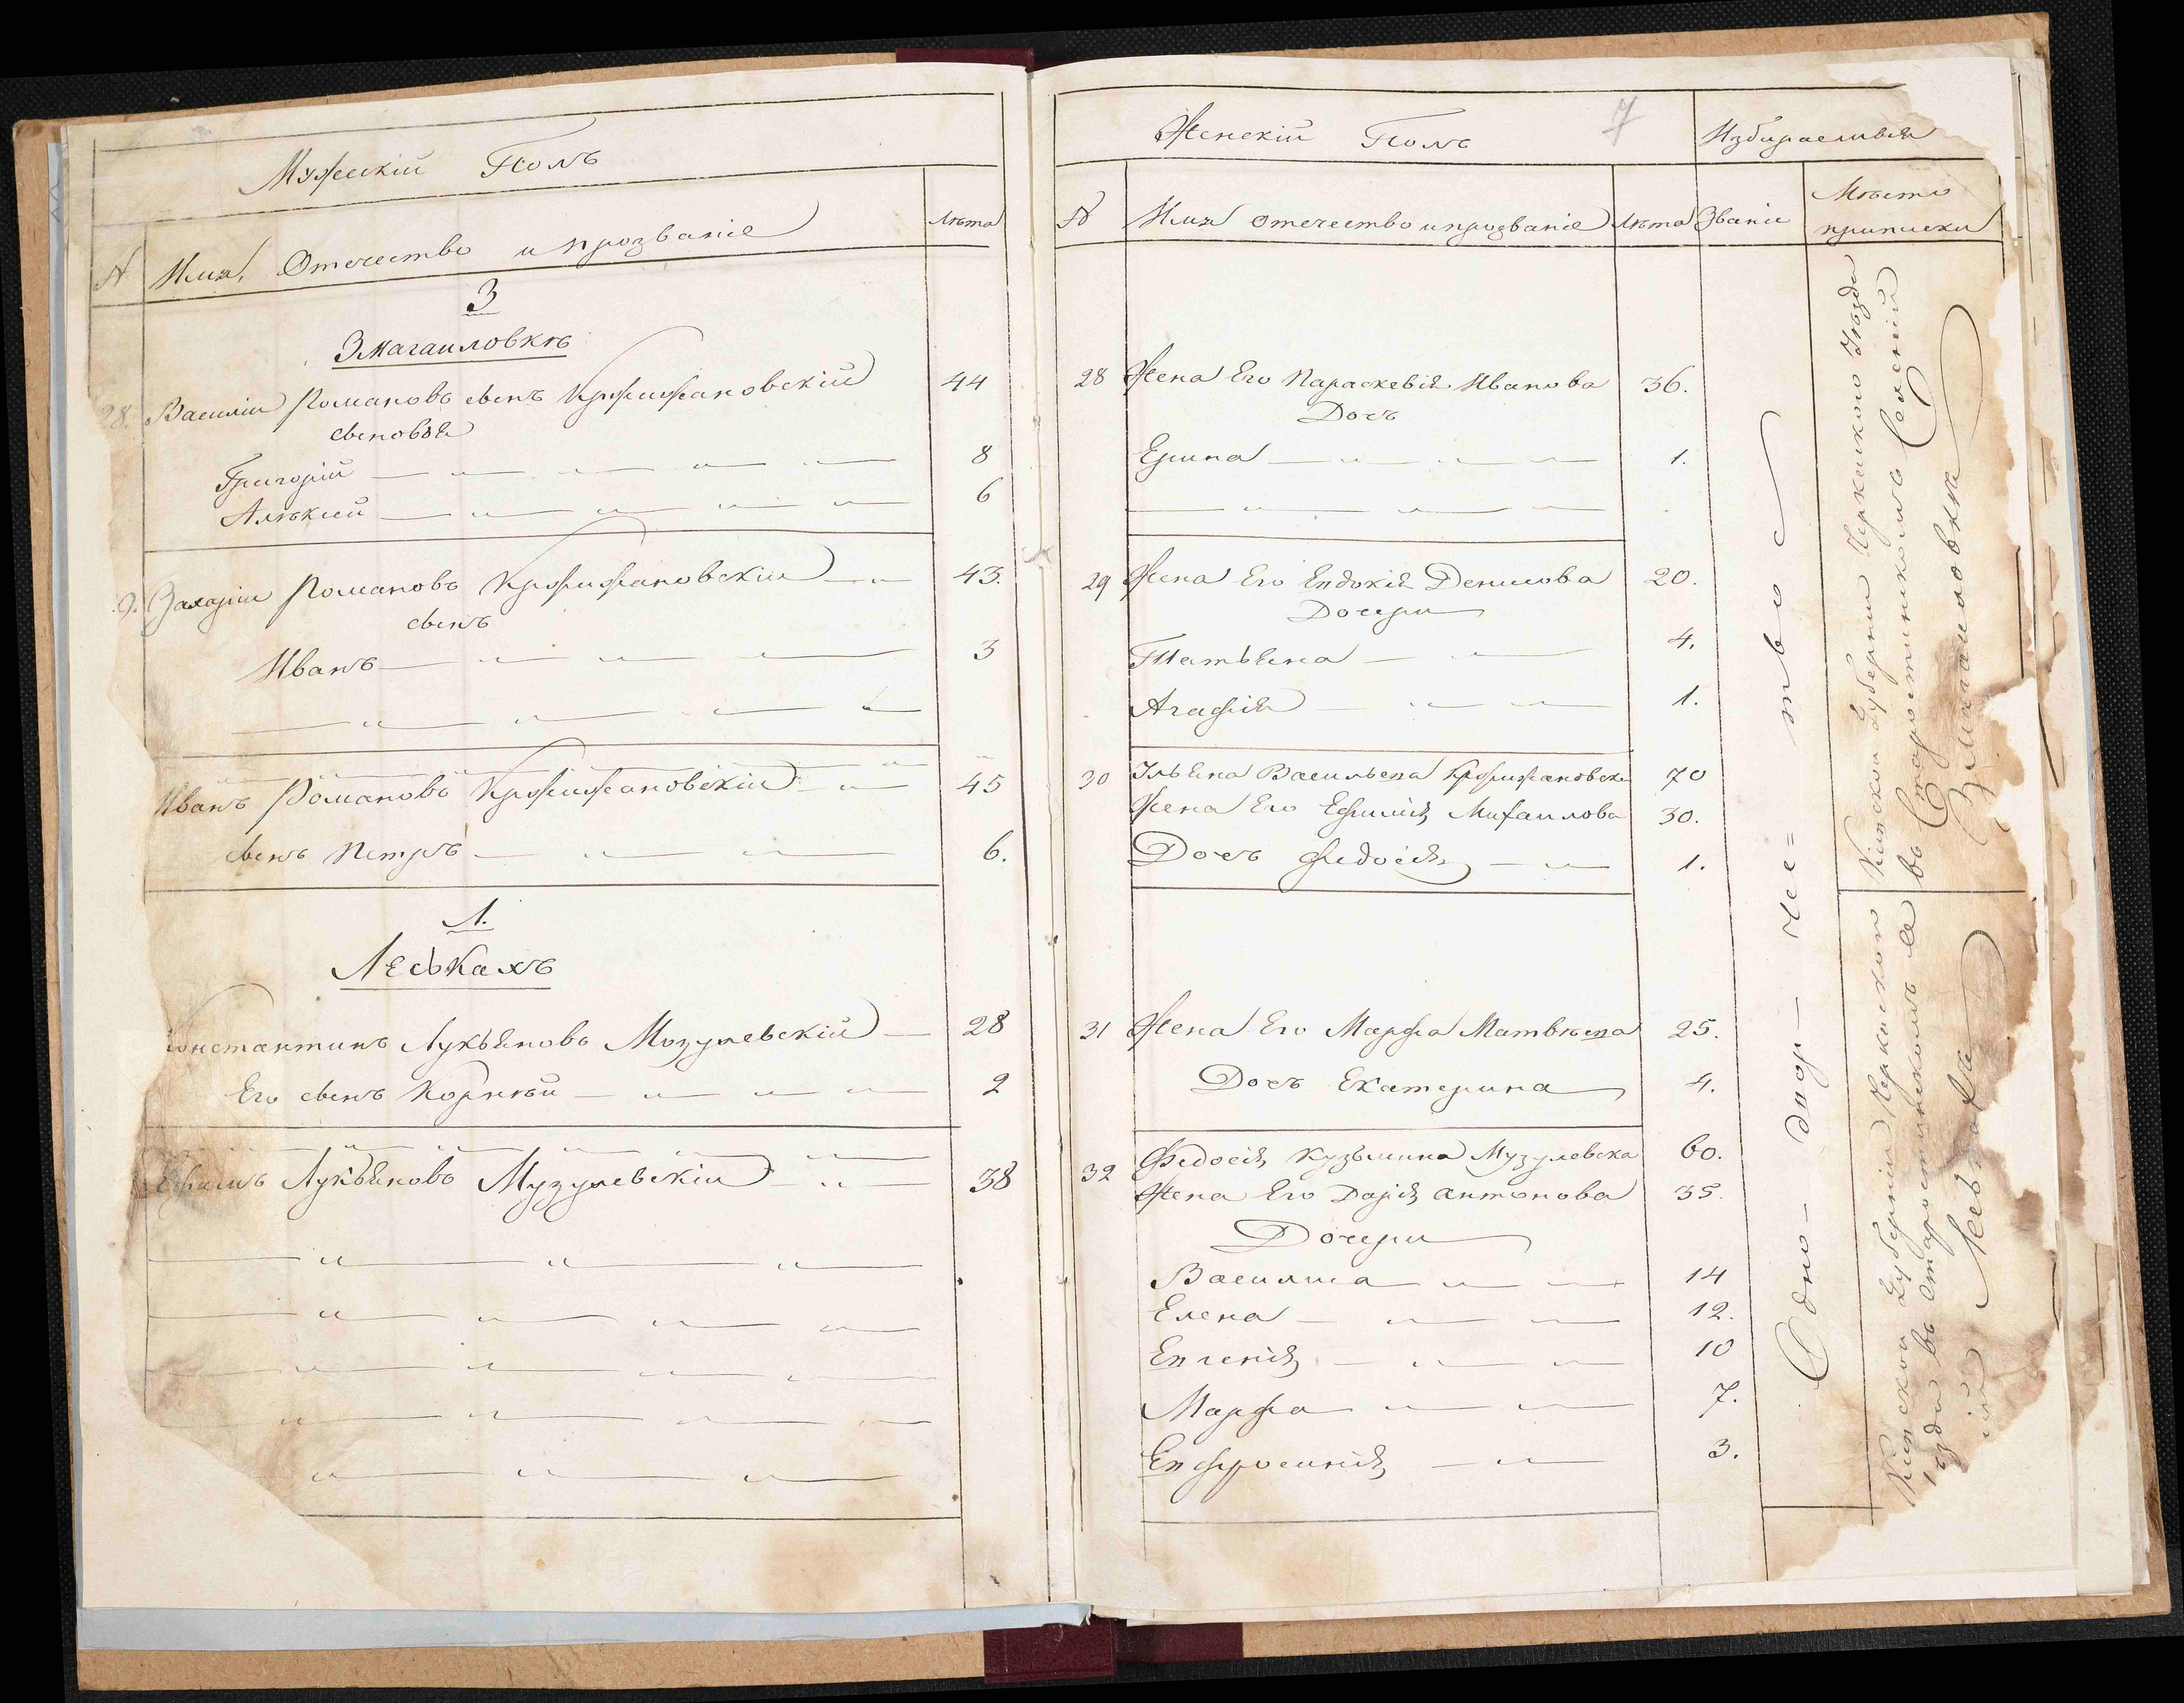 Мужескій Полъ
№ Имя, Отечество и прозваніе Лѣта
3
Змагаиловкѣ
28. Василіи Романовъ сынъ Кржижановскій 44
сыновья
Григорій 8
Алѣксѣй 6
9. Захаріи Романовъ Кржижановскіи 43.
сынъ
Иванъ 3
Иванъ Романовъ Кржижановскіи 45
сынъ Петръ 6.
Л.
Леськахъ
Константинъ Лукьяновъ Мозулевскій 28
Его сынъ Корнѣй 2
Ефимъ Лукьяновъ Музулевскіи 38
Женскій Полъ 7 Избираемыя
№ Имя отечество и прозваніе Лѣта Званіе Мѣсто
приписки
28 Жена Его Параскевія Иванова 36.
Дочъ
Ерина 1.
29 Жена Его Евдокія Денисова 20.
Дочери
Татьяна 4.
Агафія 1.
30 Ульяна Васильева Кржижановска 70
Жена Его Ефимія Михаилова 30.
Дочъ Федосія 1.
31 Жена Его Марфа Матвѣева 25.
Дочъ Екатерина 4.
32 Федосія Кузьмина Музулевска 60.
Жена Его Дарія антонова 35.
Дочери
Василиса 14
Елена 12.
Евгенія 10
Марфа 7.
Евфросинія 3.
Одно-двор-чес=тво
Кіевской Губерніи Черкаскаго Уѣзда
въ Старостинскомъ Селеніи
Змагаиловки
Кіевской Губерніи Черкаскаго
уѣзда въ старостинскомъ се
іи Леськахъ